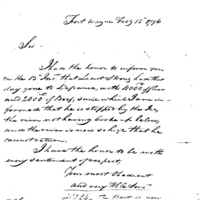 Fort Wayne Feby 15th 1796
Sir
I have the honor to inform you
on the 13 Inst that Lieut Strong has that
day gone to Defiance, with 4000
and 2000 lb of Beef, since which I am in-
formed that he is stopped by the Ice
the river not having broke below,
and the river is now so high that he
cannot return.
I have the honor to be with
every sentiment of respect,
Your most Obedient
and very